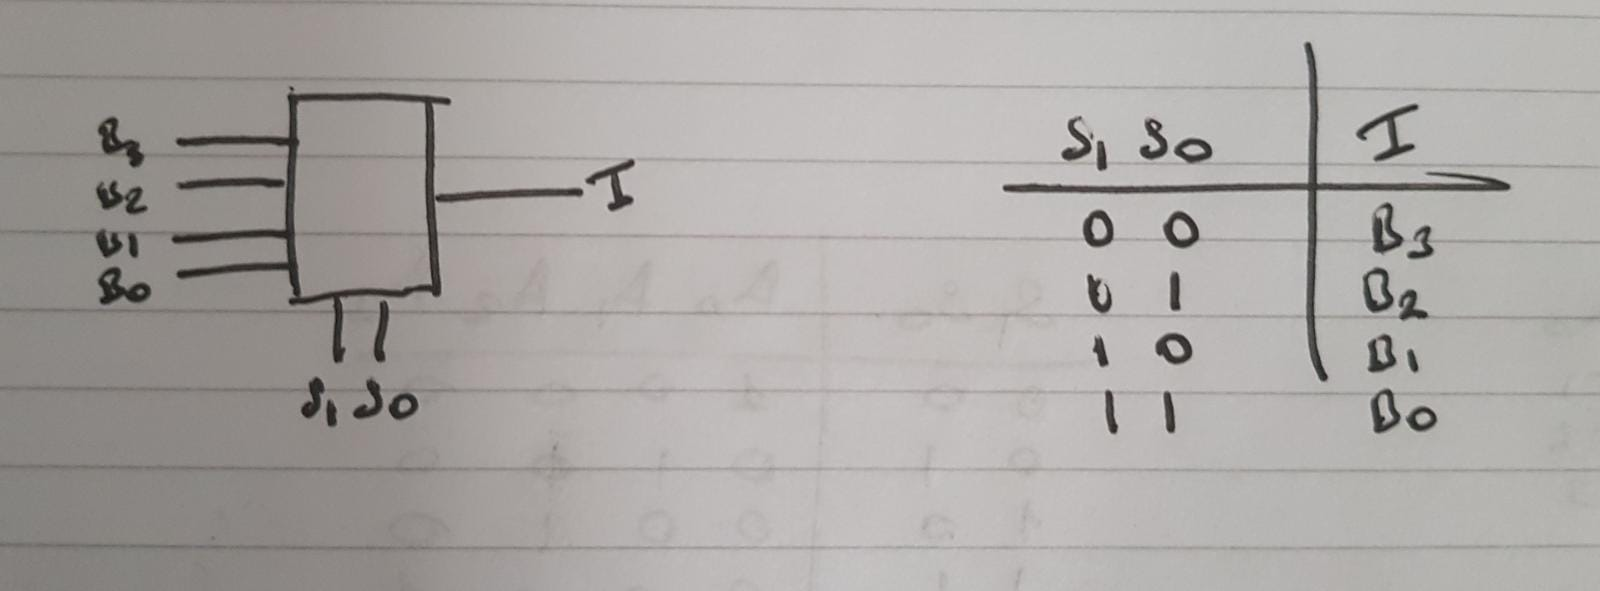 B3
B2
B1
B0
I
S1 S0
S1 S0 I
0 0 B3
0 1 B2
1 0 B1
1 1 B0